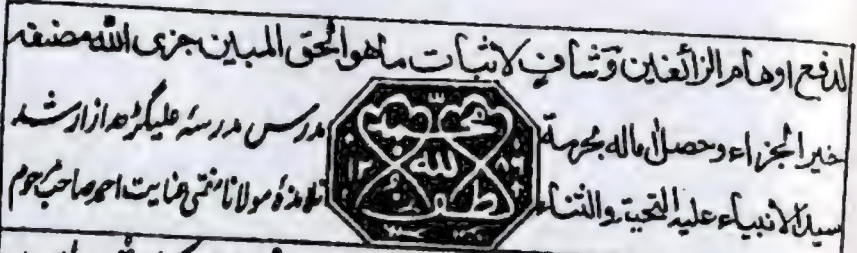 لدفع اوهام الزائغين وشاف لاثبات ماهو الحق المبين جزى الله مصنفه
خير الجزاء وحصل اماله بحرمة
سيد الانبياء عليه التحية والثناء
محمد لطف الله
مدرس مدرسه عليگڑھ از ارشد
تلامذۂ مولانا مفتی عنایت احمد صاحب مرحوم